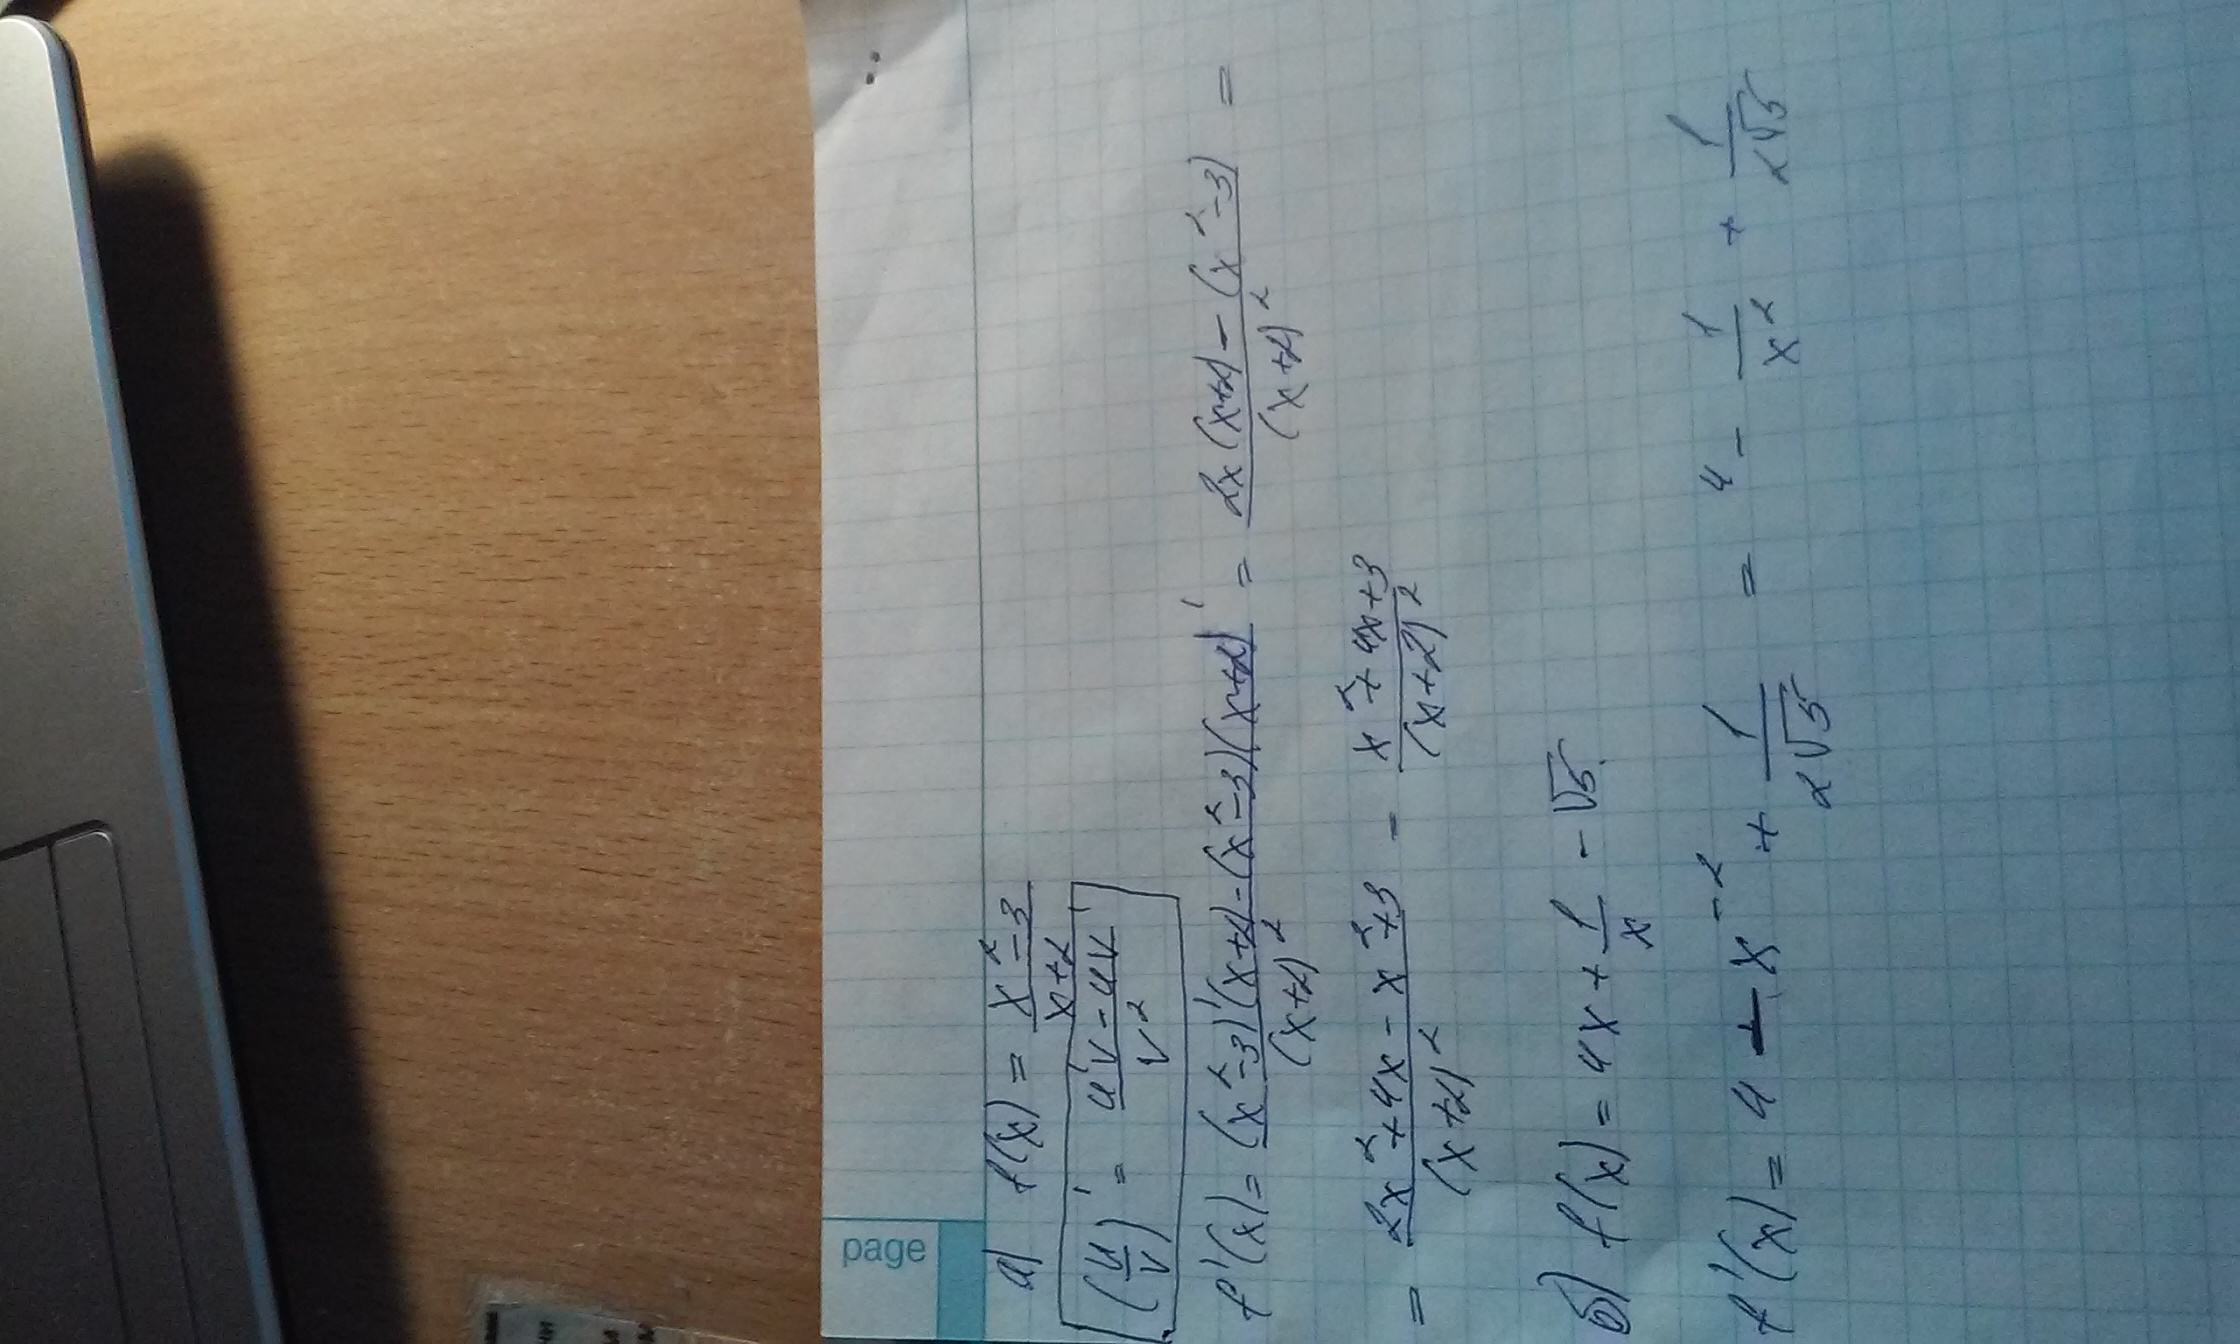 page
а) f(x) = (x² - 3)/(x+2)
(u/v)' = (u'v - uv')/v²
f'(x) = ((x²-3)'(x+2) - (x²-3)(x+2)')/(x+2)² = (2x(x+2) - (x²-3))/(x+2)² =
= (2x² + 4x - x² + 3)/(x+2)² - (x² + 4x + 3)/(x+2)²
б) f(x) = 4x + 1/x - √5
f'(x) = 4 - x⁻² + 1/(2√5) = 4 - 1/x² + 1/(2√5)